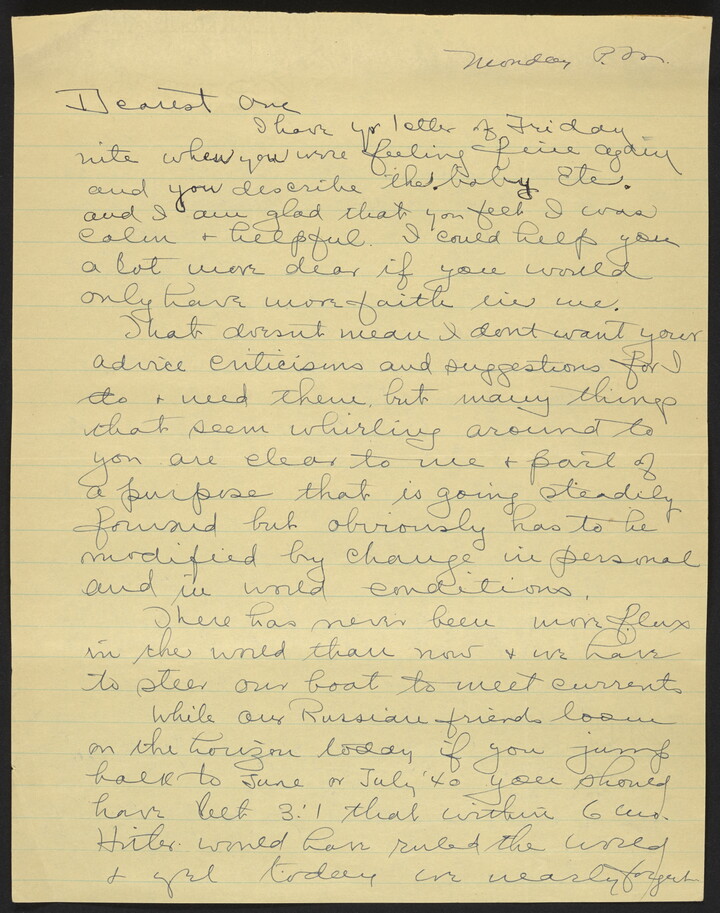 Monday P.M.
Dearest One
I have yr letter of Friday
nite when you were feeling fine again
and you describe the baby Etc.
and I am glad that you feel I was
calm + helpful. I could help you
a lot more dear if you would
only have more faith in me.
That doesnt mean I dont want your
advice criticisms and suggestions for I
do + need them, but many things
that seem whirling around to
you are clear to me + part of
a purpose that is going steadily
forward but obviously has to be
modified by change in personal
and in world conditions.
There has never been more flux
in the world than now + we have
to steer our boat to meet currents
While our Russian friends loom
on the horizon today if you jump
back to June or July '40 you should
have bet 3:1 that within 6 mo.
Hitler would have ruled the world
+ yet today we nearly forget